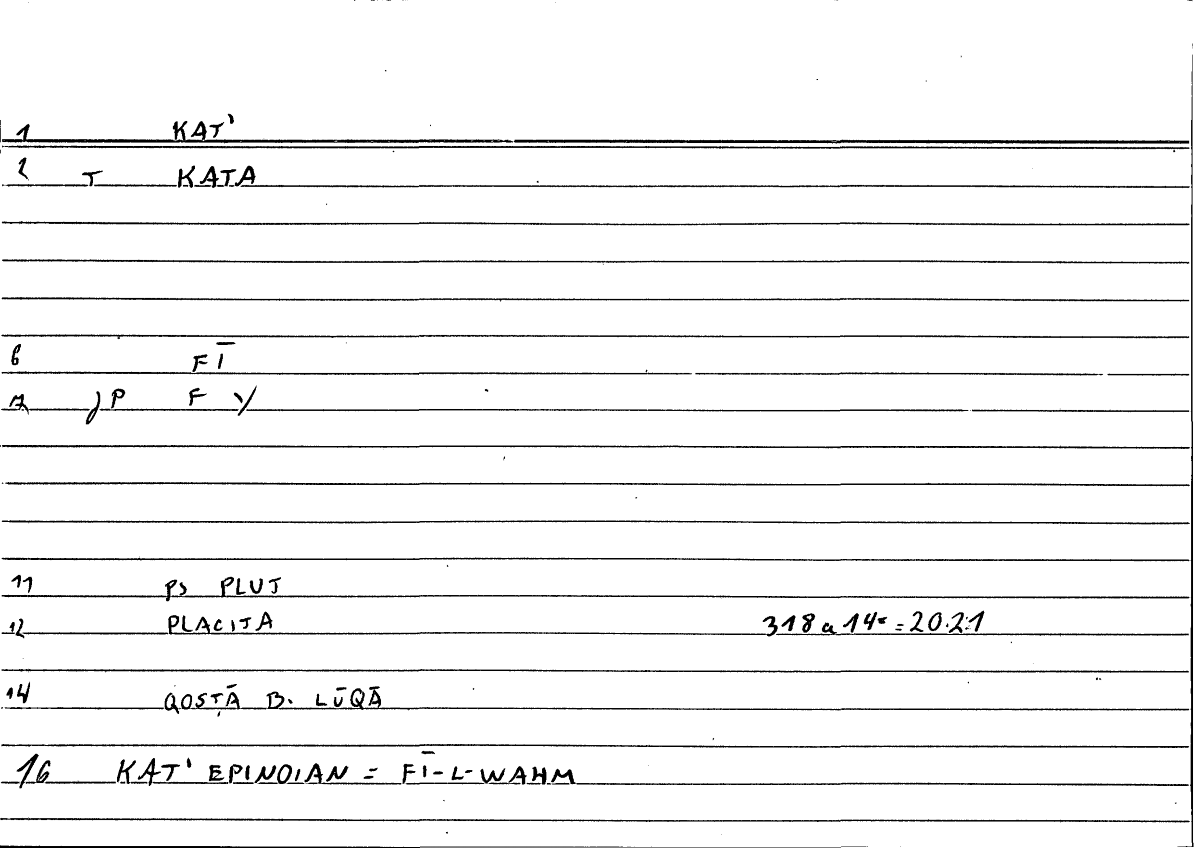 1 KAT'
2 T KATA
6 FĪ
7 JP F Y
11 PS PLUT
12 PLACITA 318 a 14 = 20.21
14 QOSṬĀ B. LŪQĀ
16 KAT' EPINOIAN = FĪ-L-WAHM